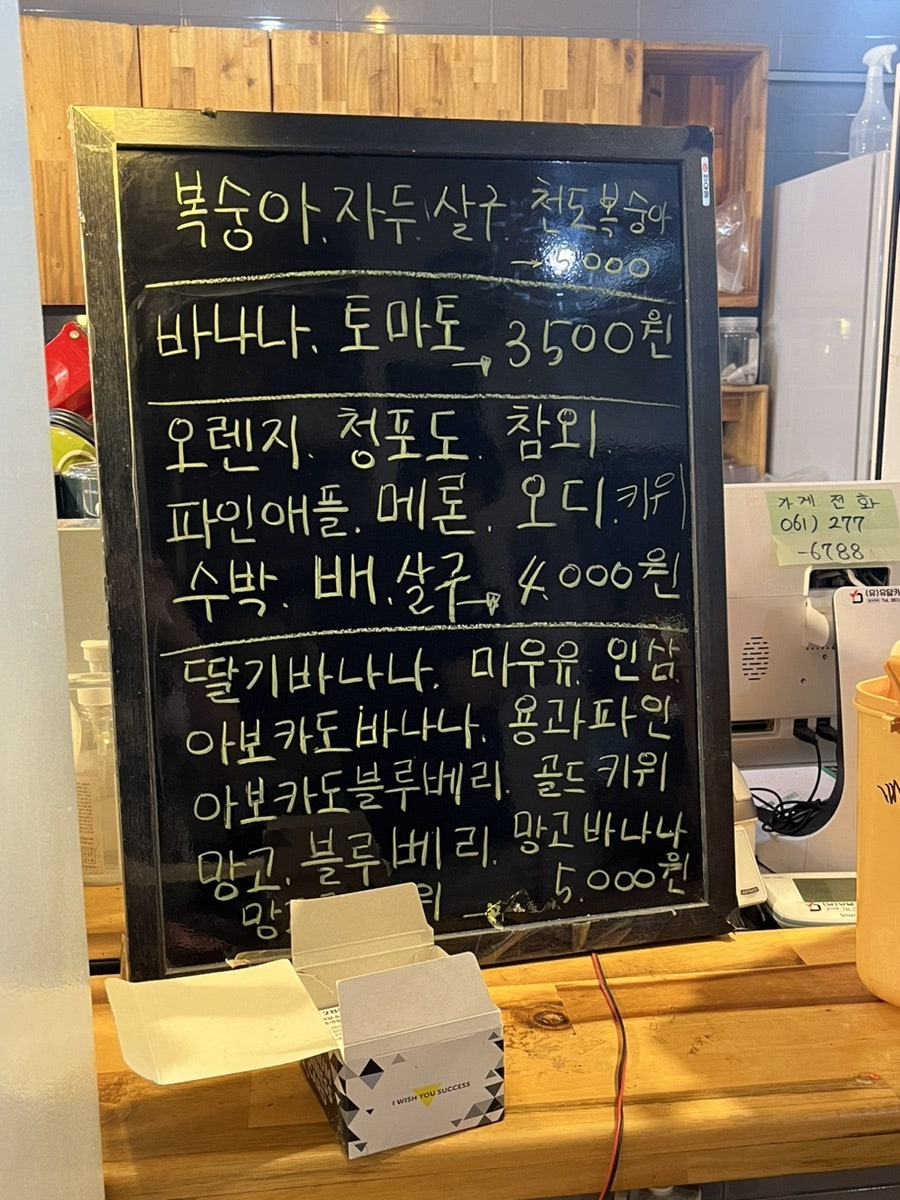 복숭아. 자두. 살구. 천도복숭아
→ 5,000
바나나. 토마토 → 3500원
오렌지. 청포도. 참외.
파인애플. 메론. 오디. 키위
수박. 배. 살구 → 4.000원
딸기바나나. 마우유. 인삼
아보카도바나나. 용과파인
아보카도블루베리. 골드키위
망고. 블루베리. 망고바나나
5.000원
가게 전화
061) 277
-6788
(유)유달카
I WISH YOU SUCCESS